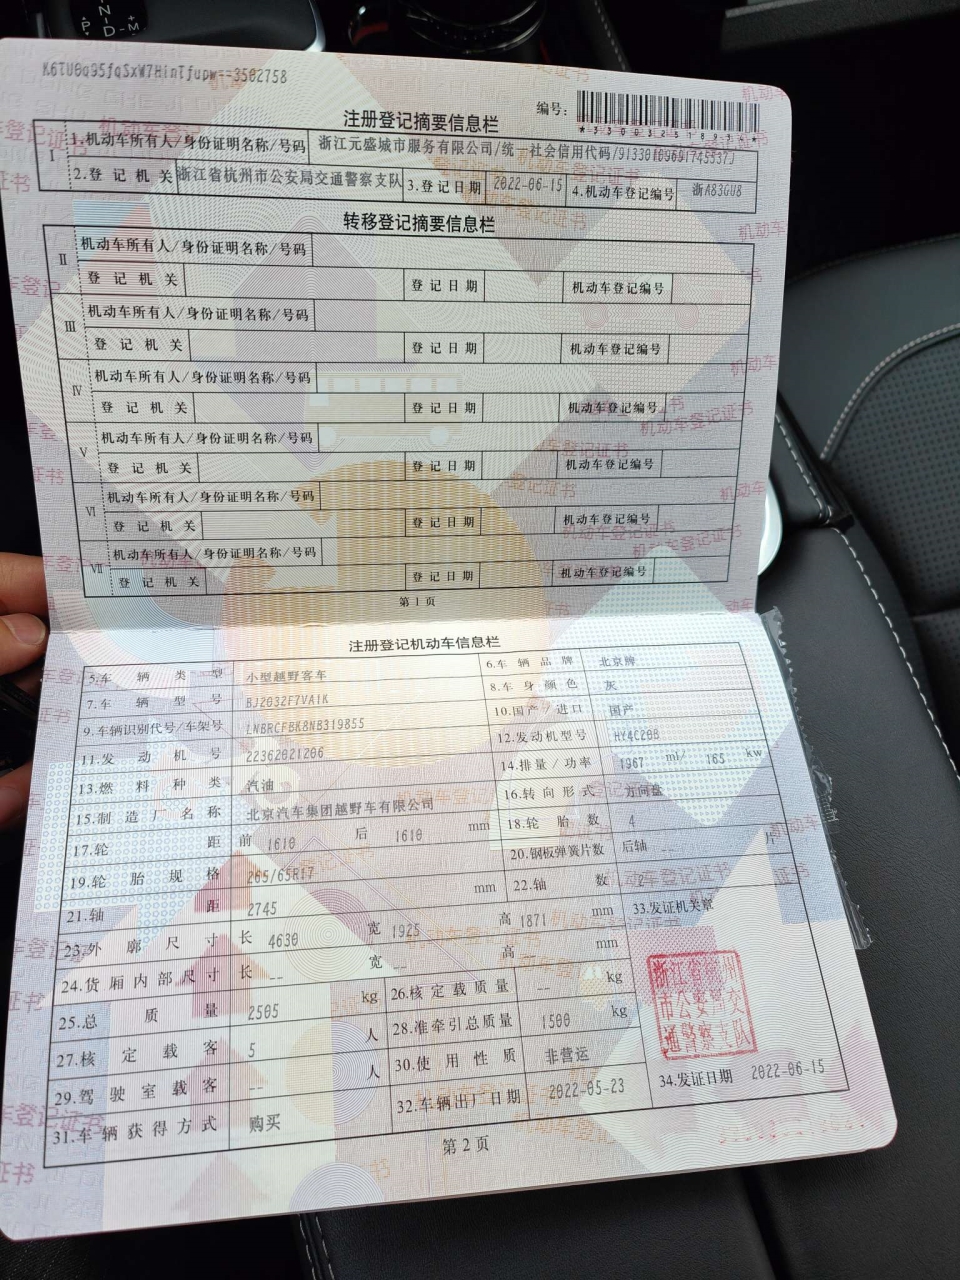 P N D - M
K6TU0q95fqSxW7HinTfupw==3502758
编号:
注册登记摘要信息栏
Ⅰ 1.机动车所有人/身份证明名称/号码 浙江元盛城市服务有限公司/统一社会信用代码/
2.登记机关 浙江省杭州市公安局交通警察支队 3.登记日期 2022-06-15 4.机动车登记编号 浙A83GU8
转移登记摘要信息栏
Ⅱ 机动车所有人/身份证明名称/号码
登记机关 登记日期 机动车登记编号
Ⅲ 机动车所有人/身份证明名称/号码
登记机关 登记日期 机动车登记编号
Ⅳ 机动车所有人/身份证明名称/号码
登记机关 登记日期 机动车登记编号
Ⅴ 机动车所有人/身份证明名称/号码
登记机关 登记日期 机动车登记编号
Ⅵ 机动车所有人/身份证明名称/号码
登记机关 登记日期 机动车登记编号
Ⅶ 机动车所有人/身份证明名称/号码
登记机关 登记日期 机动车登记编号
第1页
注册登记机动车信息栏
5.车辆类型 小型越野客车 6.车辆品牌 北京牌
7.车辆型号 BJ2032F7VA1K 8.车身颜色 灰
9.车辆识别代号/车架号 LNBRCFBK8NB319855 10.国产/进口 国产
11.发动机号 22362021206 12.发动机型号
13.燃料种类 汽油 14.排量/功率 1967 ml/ 165 kw
15.制造厂名称 北京汽车集团越野车有限公司 16.转向形式 方向盘
17.轮距 前 1610 后 1610 mm 18.轮胎数 4
19.轮胎规格 265/65R17 20.钢板弹簧片数 后轴 -- 片
21.轴距 2745 mm 22.轴数 2
23.外廓尺寸 长 4630 宽 1925 高 1871 mm 33.发证机关章
24.货厢内部尺寸 长 -- 宽 -- 高 mm
25.总质量 2505 kg 26.核定载质量 -- kg
27.核定载客 5 人 28.准牵引总质量 1500 kg
29.驾驶室载客 -- 人 30.使用性质 非营运
31.车辆获得方式 购买 32.车辆出厂日期 2022-05-23 34.发证日期 2022-06-15
浙江省杭州
市公安局交
通警察支队
第2页